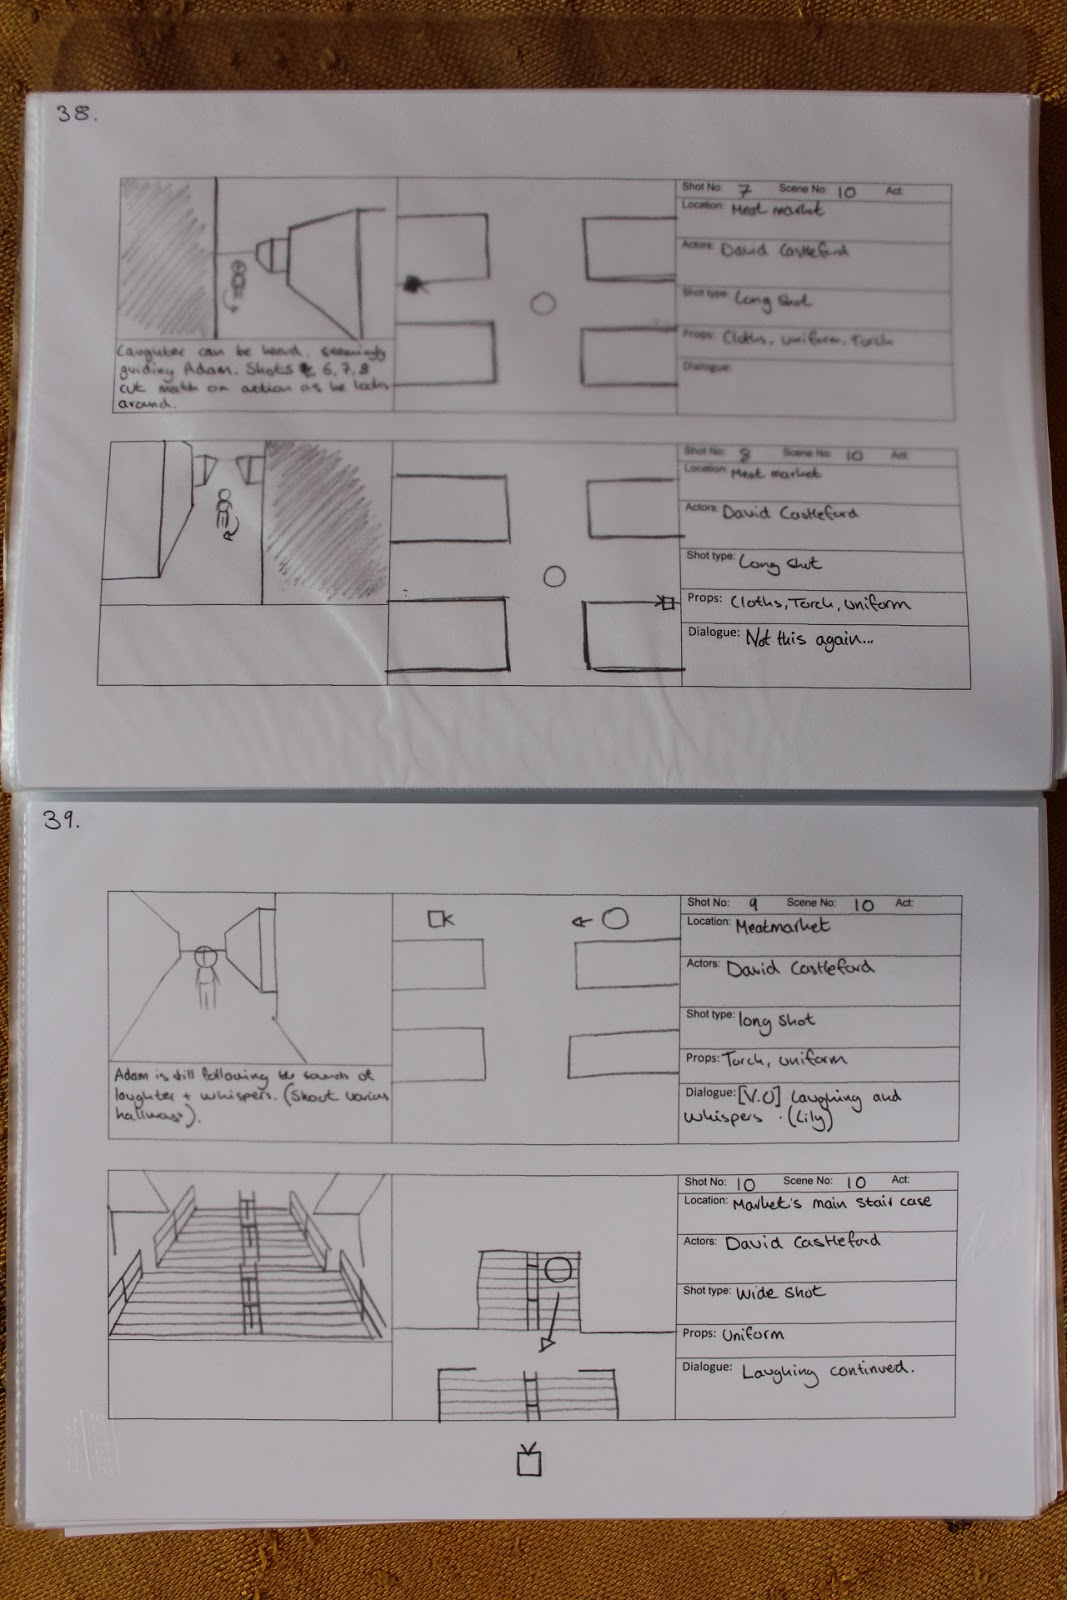 38.
Shot No: 7 Scene No: 10 Act:
Location: Meat market
Actors: David Castleford
Shot type: Long shot
Props: Cloths, uniform, Torch
Dialogue:
Laughter can be heard, seemingly
guiding Adam. Shots 6, 7, 8
cut match on action as he looks
around.
Shot No: 8 Scene No: 10 Act:
Location: Meat market
Actors: David Castleford
Shot type: Long shot
Props: Cloths, Torch, uniform
Dialogue: Not this again...
39.
Shot No: 9 Scene No: 10 Act:
Location: Meatmarket
Actors: David Castleford
Shot type: long shot
Props: Torch, uniform
Dialogue: [V.O] Laughing and
whispers. (Lily)
Adam is still following the sounds of
laughter + whispers. (Shoot various
hallways).
Shot No: 10 Scene No: 10 Act:
Location: Market's main stair case
Actors: David Castleford
Shot type: Wide shot
Props: Uniform
Dialogue: Laughing continued.